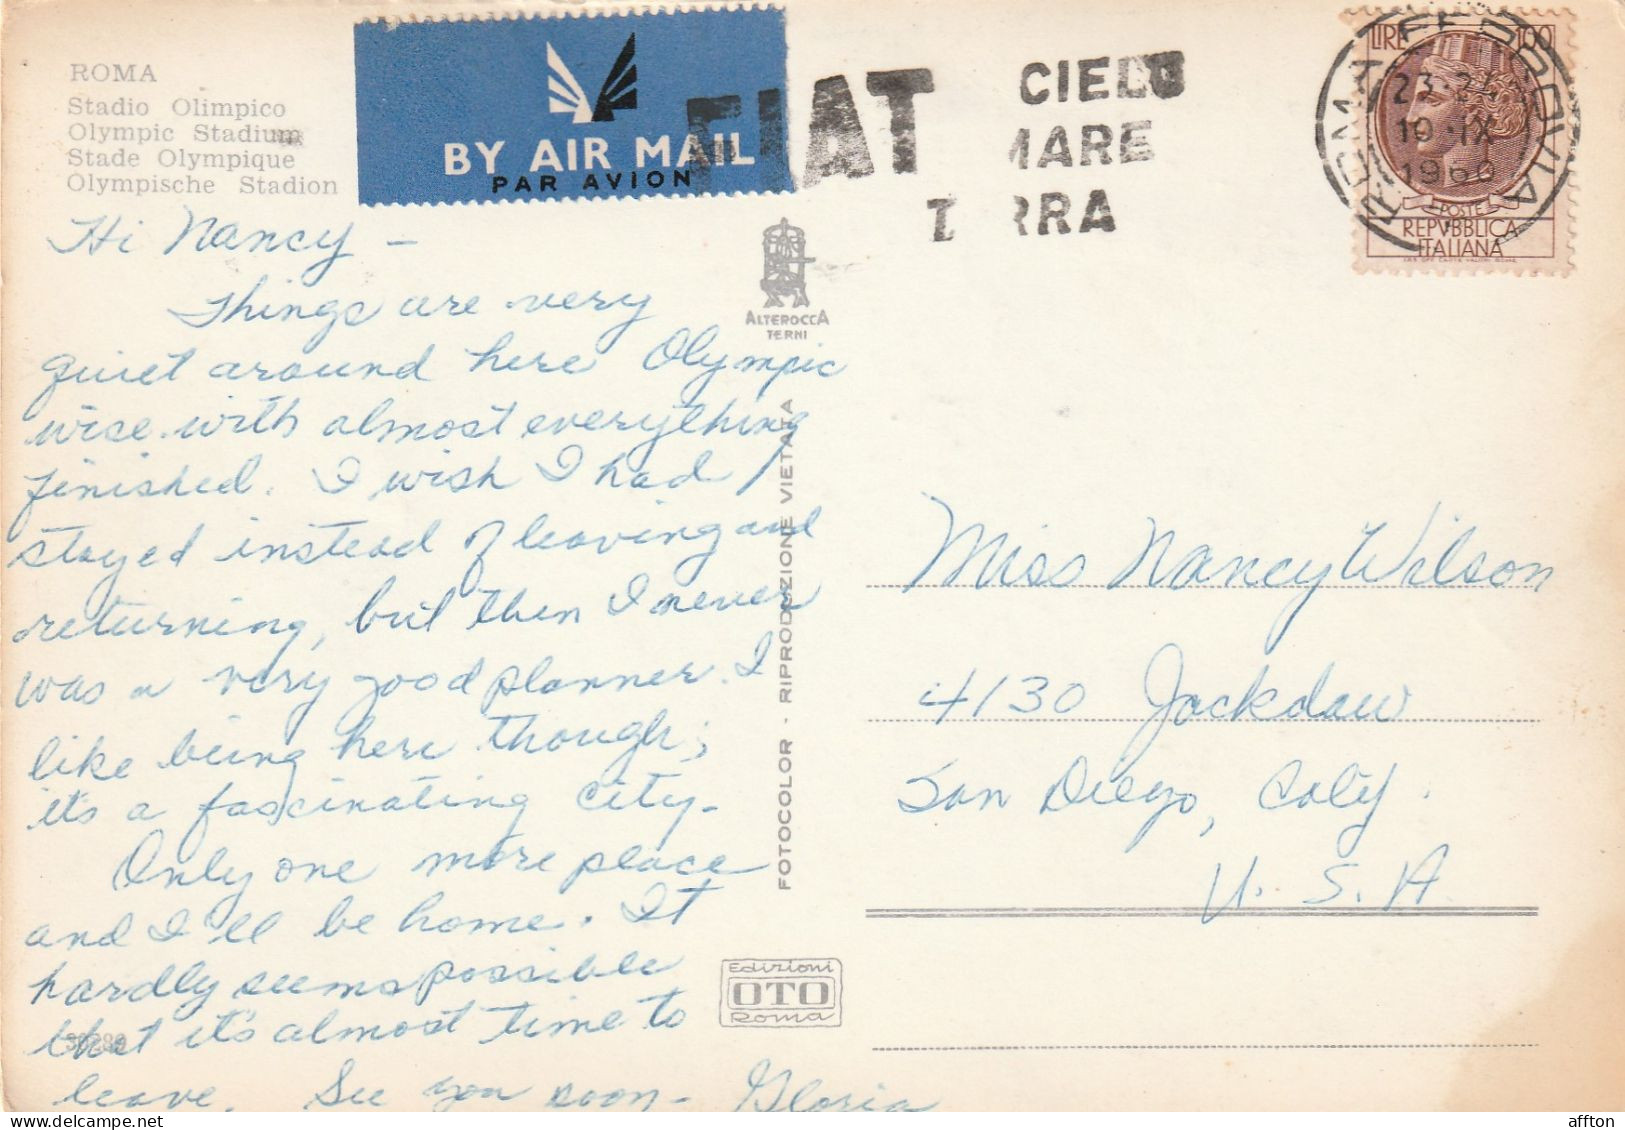 ROMA
Stadio Olimpico
Olympic Stadium
Stade Olympique
Olympische Stadion
BY AIR MAIL
PAR AVION
FIAT
CIELO
MARE
TERRA
LIRE 100
ROMA FERROVIA
23-24
10·IX
1960
POSTE
REPVBBLICA
ITALIANA
Hi Nancy –
Things are very
quiet around here Olympic
wise with almost everything
finished. I wish I had
stayed instead of leaving and
returning, but then I never
was a very good planner. I
like being here though;
it's a fascinating city.
Only one more place
and I'll be home. It
hardly seems possible
that it's almost time to
leave. See you soon – Gloria
30289
ALTEROCCA
TERNI
FOTOCOLOR - RIPRODUZIONE VIETATA
Edizioni
OTO
Roma
Miss Nancy Wilson
4130 Jackdaw
San Diego, Caly.
U. S. A.
affton